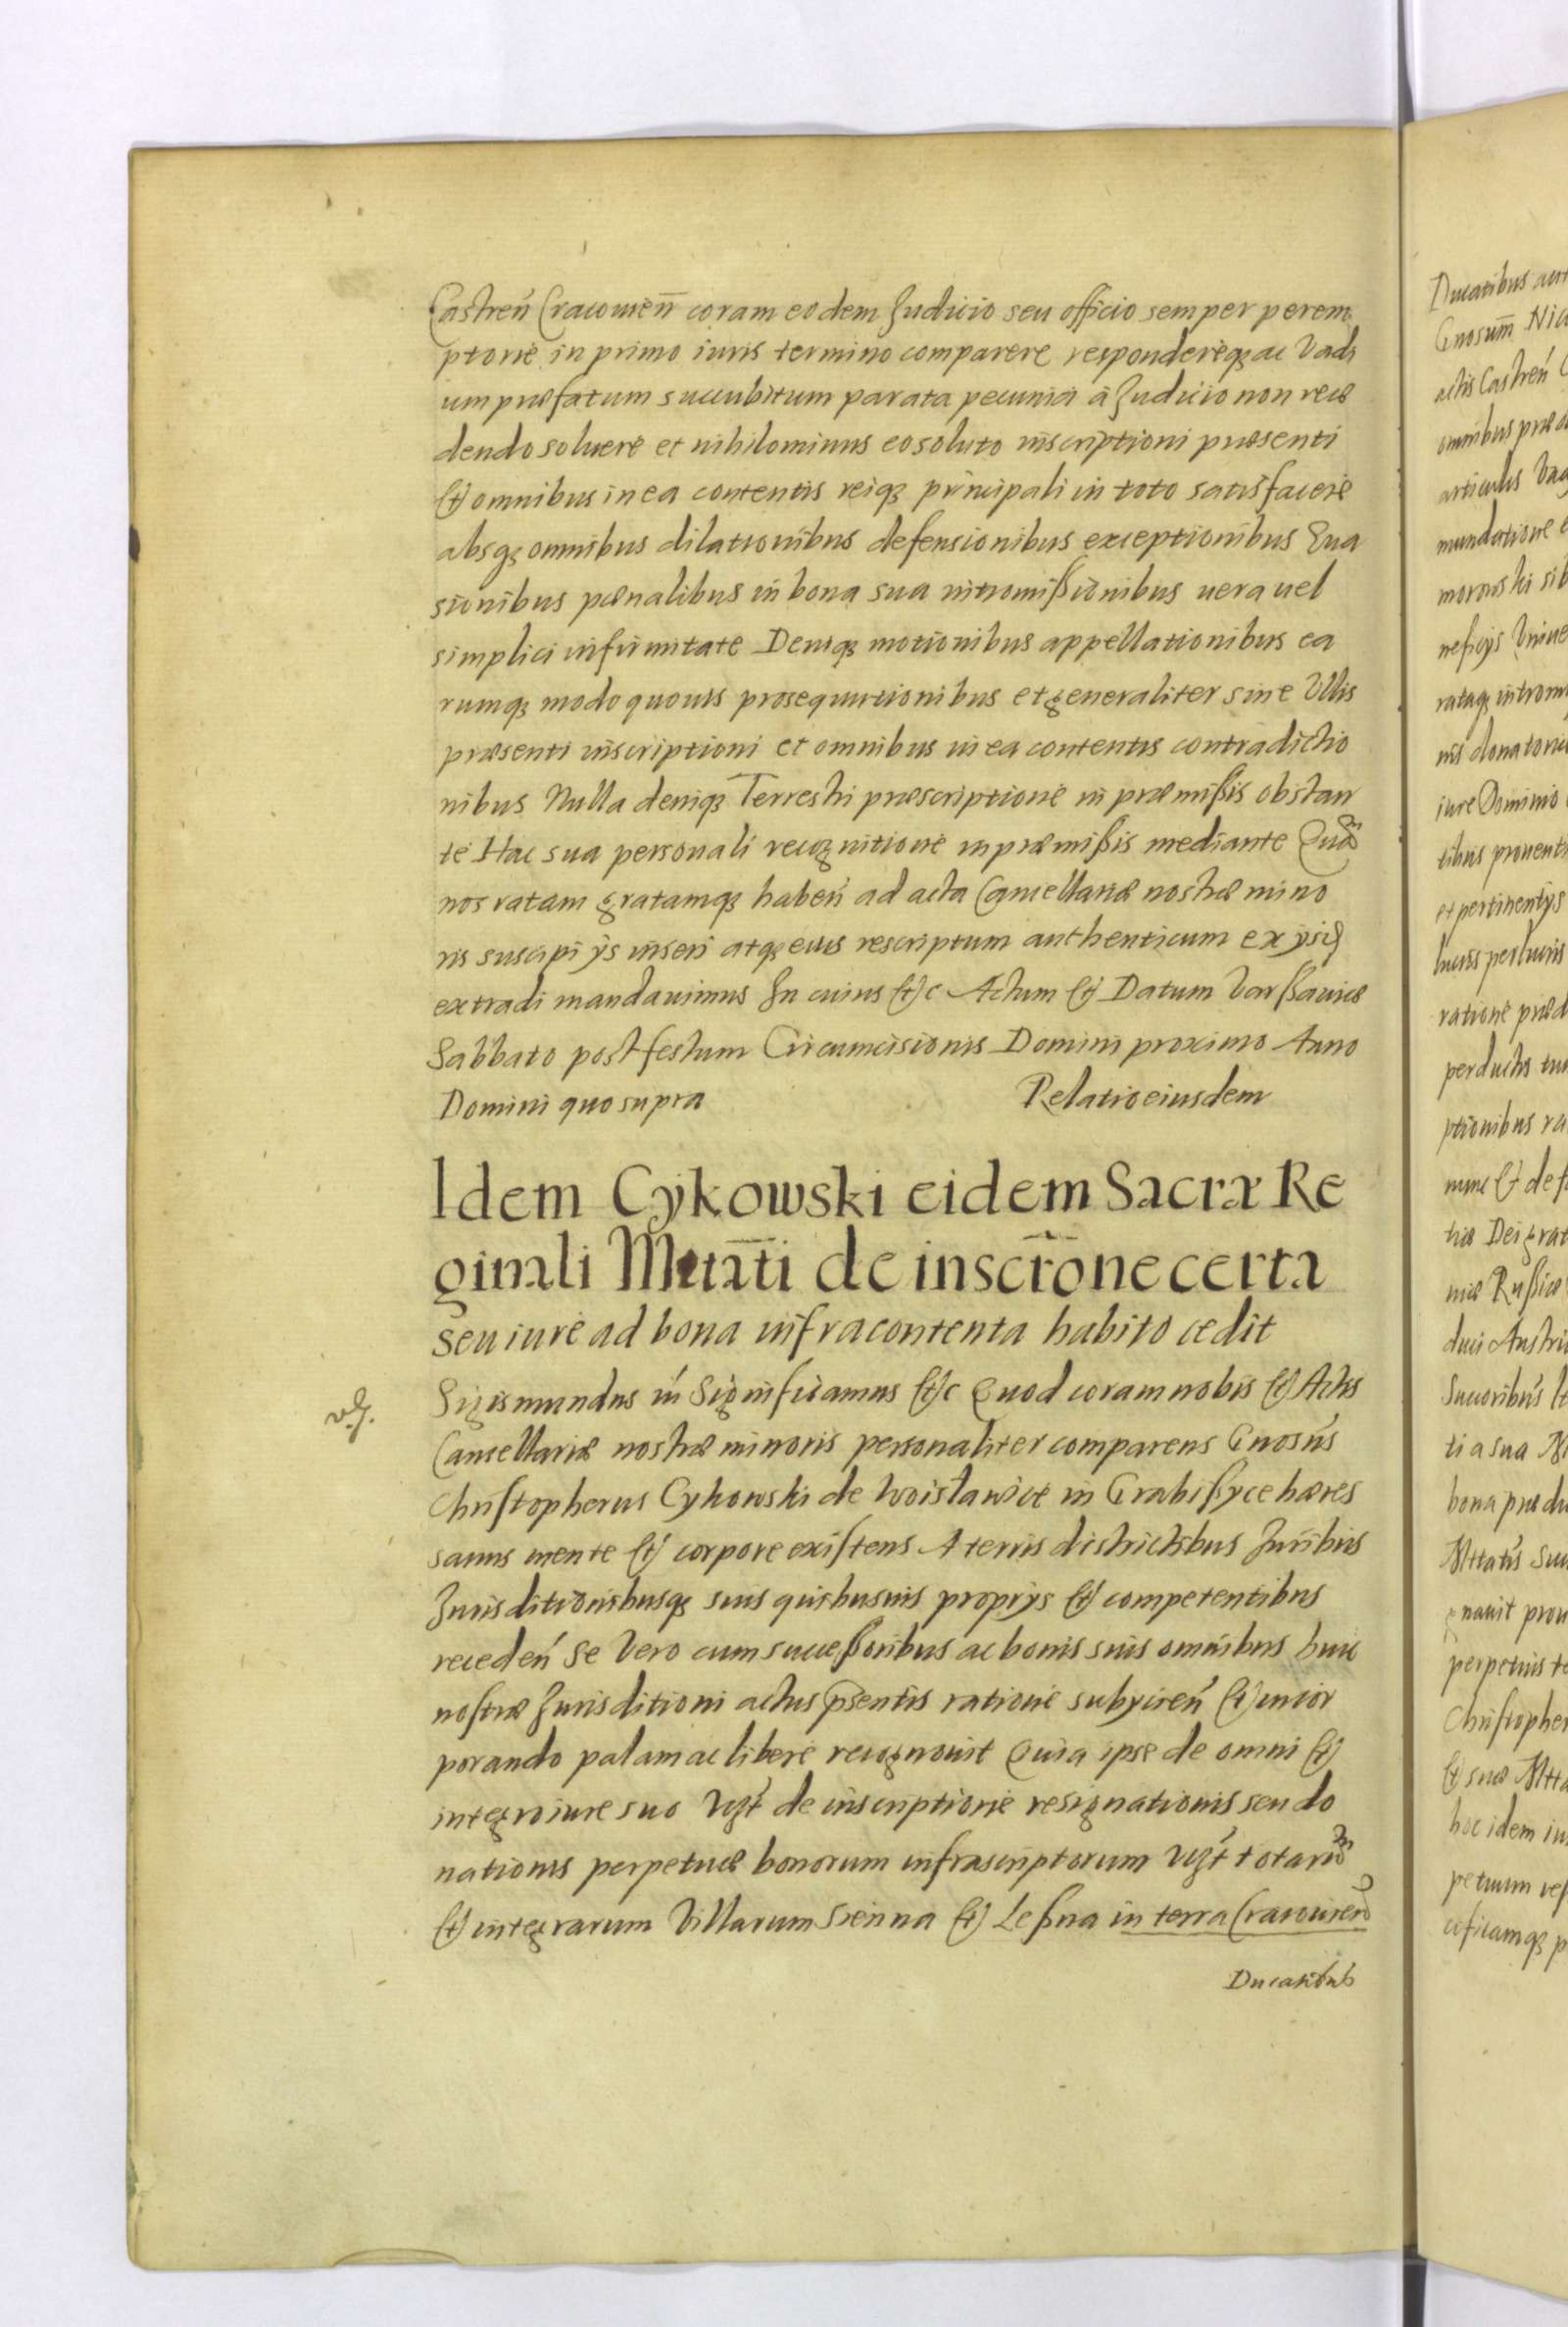 Castren̄ Cracouien̄ coram eodem Judicio seu officio semper perem
ptorie in primo iuris termino comparere respondereq; ac Vadi
um præfatum succubitum parata pecunia à Judicio non rece
dendo soluere et nihilominus eo soluto inscriptioni præsenti
et omnibus in ea contentis reiq; principali in toto satisfacere
absq; omnibus dilationibus defensionibus exceptionibus Eua
sionibus pœnalibus in bona sua intromißionibus uera uel
simplici infirmitate Deniq; motionibus appellationibus ea
rumq; modo quouis prosequutionibus et generaliter sine Vllis
præsenti inscriptioni et omnibus in ea contentis contradictio
nibus Nulla deniq; Terrestri præscriptione in præmißis obstan
te Hac sua personali recognitione in præmißis mediante Quā
nos ratam gratamq; haben̄ ad acta Cancellariæ nostræ mino
ris suscipi ijs inseri atq; eius rescriptum authenticum ex ijsd
extradi mandauimus In cuius etc Actum et Datum Varßauiæ
Sabbato post festum Circumcisionis Domini proximo Anno
Domini quo supra Relatio eiusdem
Idem Cykowski eidem Sacræ Re
ginali Mttati de inscr̄one certa
seu iure ad bona infracontenta habito cedit
vg.
Sigismundus in Significamus etc Quod coram nobis et Actis
Cancellariæ nostræ minoris personaliter comparens Gnosus
Christopherus Cykowski de Woislawice in Grabißyce hæres
sanus mente et corpore existens A terris districtibus Juribus
Jurisditionibusq; suis quibusuis proprijs et competentibus
receden̄ Se Vero cum succeßoribus ac bonis suis omnibus huic
nostræ Jurisditioni actus p̄sentis ratione subijcien̄ et incor
porando palam ac libere recognouit Quia ipse de omni et
integro iure suo Vzt de inscriptione resignationis seu do
nationis perpetuæ bonorum infrascriptorum Vzt totarum
et integrarum Villarum Sienna et Leßna in terra Cracouien
Ducatibus
Ducatibus
Gnosum̄
actis Castren̄
omnibus
articulis
mundatione
iure Dominio
et pertinentijs
ratione
perductis
bona
perpetuis
hoc idem